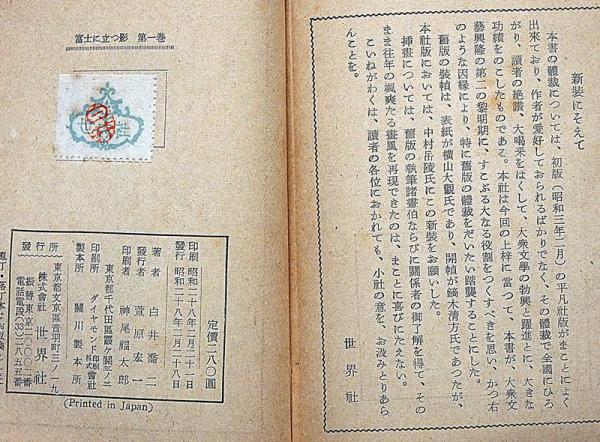 新裝にそえて
本書の體裁については、初版(昭和三年二月)の平凡社版がまことによく
出來ており、作者が愛好しておられるばかりでなく、その體裁で全國にひろ
がり、讀者の絶讃、大喝采をはくして、大衆文學の勃興と躍進とに、大きな
功績をのこしたものである。本社は今回の上梓に當つて、本書が、大衆文
藝興隆の第二の黎明期に、すこぶる大なる役割をつくすべきを思い、かつ右
のような因縁により、特に舊版の體裁をだいたい踏襲することにした。
舊版の裝幀は、表紙が横山大觀氏であり、開幀が鏑木清方氏であつたが、
本社版においては、中村岳陵氏にこの新裝をお願いした。
挿畫については、舊版の執筆諸畫伯ならびに關係者の御了解を得て、その
まま往年の颯爽たる畫風を再現できたのは、まことに喜びにたえない。
こいねがわくは、讀者の各位におかれても、小社の意を、お汲みとりあら
んことを。
世界社
富士に立つ影 第一巻
定價二八〇圓
印刷 昭和二十八年二月二十一日
發行 昭和二十八年二月二十八日
著者 白井喬二
發行者 菅原宏一
印刷者 神尾福太郎
東京都千代田區霞ヶ關三ノ二
印刷所 ダイヤモンド印刷株式會社
製本所 關川製本所
東京都文京區音羽町三ノ一九
發行所 株式會社 世界社
振替東京二一〇〇二番
電話電段(33)二八五五番
(Printed in Japan)